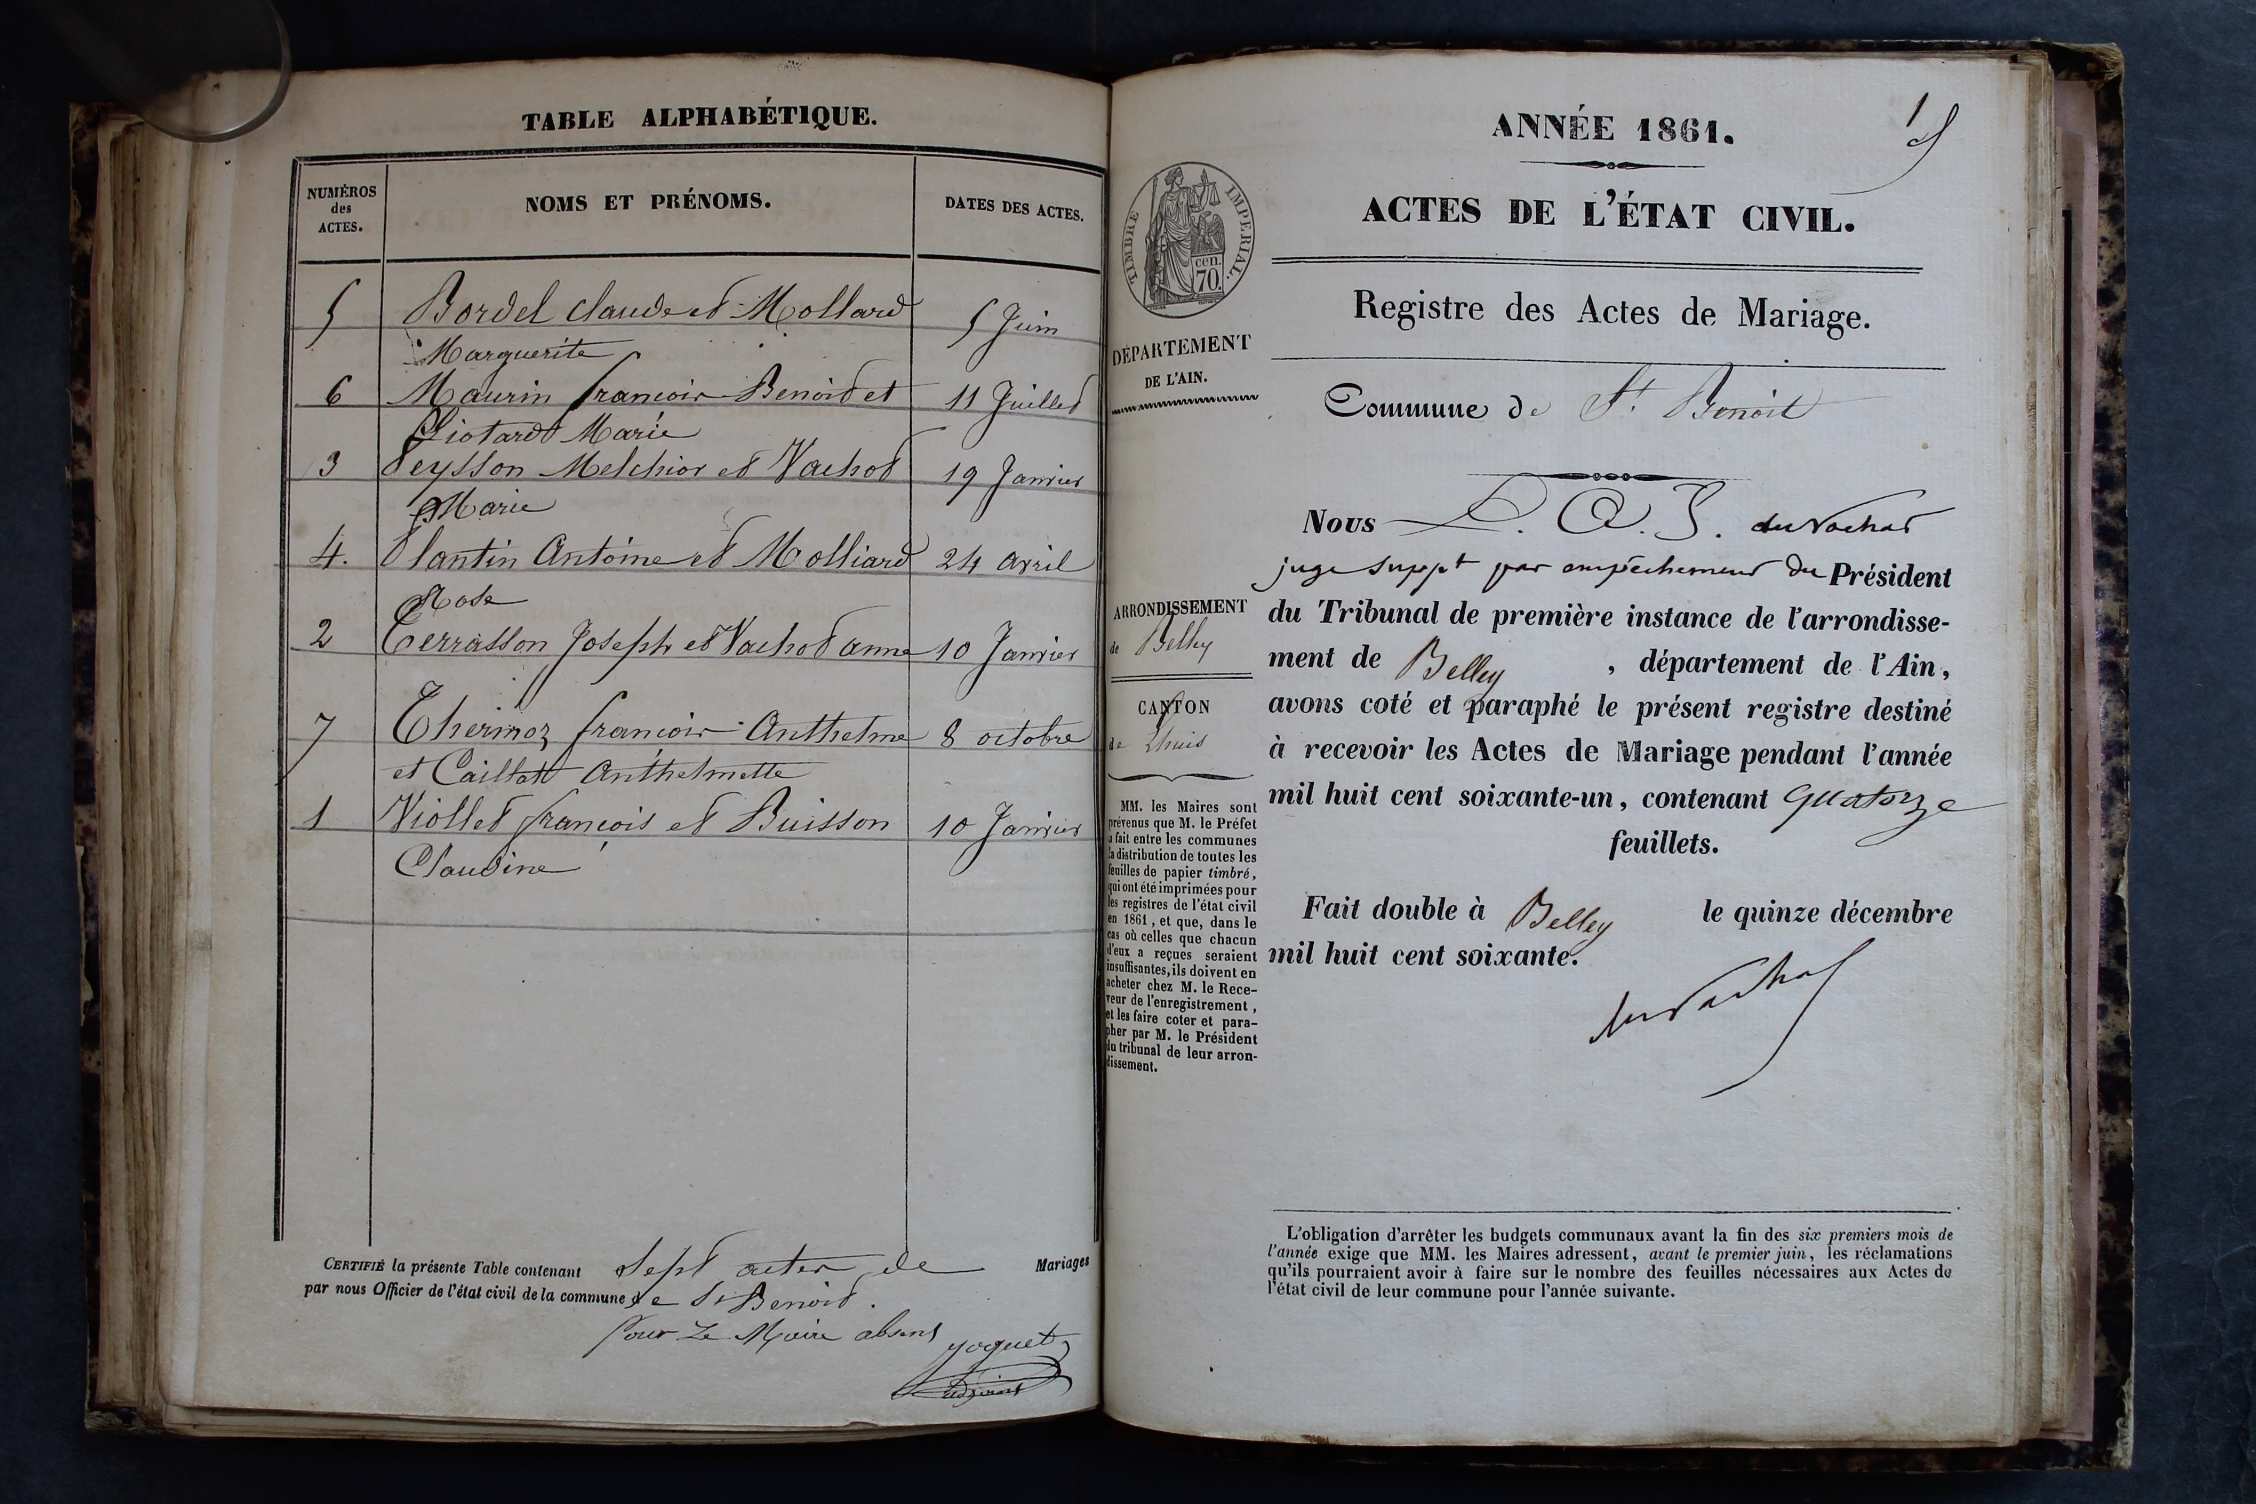 TABLE ALPHABÉTIQUE.
NUMÉROS
des
ACTES.
NOMS ET PRÉNOMS.
DATES DES ACTES.
5 Bordel Claude et Mollard 5 Juin
Marguerite
6 Maurin françois Benoit et 11 Juillet
Liotard Marie
3 Peysson Melchior et Vachot 19 Janvier
Marie
4. Plantin Antoine et Molliard 24 avril
Rose
2 Terrasson Joseph et Vachot anne 10 Janvier
7 Thermoz françois Anthelme 8 octobre
et Caillot Anthelmette
1 Viollet françois et Buisson 10 Janvier
Claudine
CERTIFIÉ la présente Table contenant Sept actes de Mariages
par nous Officier de l'état civil de la commune de St Benoit.
Pour Le Maire absent
ANNÉE 1861.
1
ACTES DE L'ÉTAT CIVIL.
TIMBRE IMPERIAL.
cen.
70.
Registre des Actes de Mariage.
DÉPARTEMENT
DE L'AIN.
Commune de St. Benoit
Nous
juge suppt par empêchement du Président
du Tribunal de première instance de l'arrondisse-
ment de Belley , département de l'Ain,
avons coté et paraphé le présent registre destiné
à recevoir les Actes de Mariage pendant l'année
mil huit cent soixante-un, contenant quatorze
feuillets.
Fait double à Belley le quinze décembre
mil huit cent soixante.
ARRONDISSEMENT
de Belley
CANTON
de Lhuis
MM. les Maires sont
prévenus que M. le Préfet
a fait entre les communes
la distribution de toutes les
feuilles de papier timbré,
qui ont été imprimées pour
les registres de l'état civil
en 1861, et que, dans le
cas où celles que chacun
d'eux a reçues seraient
insuffisantes, ils doivent en
acheter chez M. le Rece-
veur de l'enregistrement,
et les faire coter et para-
pher par M. le Président
du tribunal de leur arron-
dissement.
L'obligation d'arrêter les budgets communaux avant la fin des six premiers mois de
l'année exige que MM. les Maires adressent, avant le premier juin, les réclamations
qu'ils pourraient avoir à faire sur le nombre des feuilles nécessaires aux Actes de
l'état civil de leur commune pour l'année suivante.